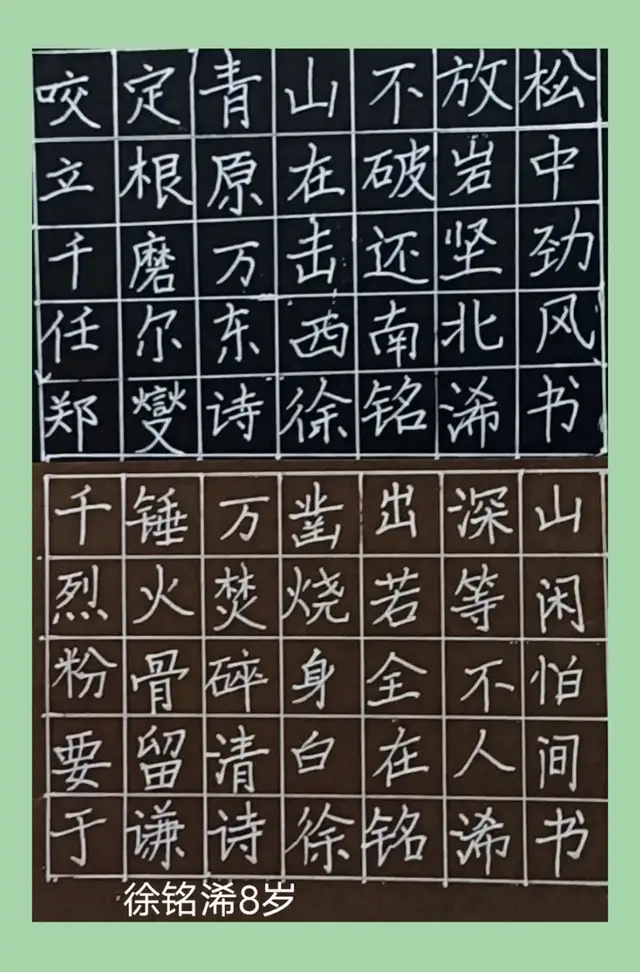 咬定青山不放松
立根原在破岩中
千磨万击还坚劲
任尔东西南北风
郑燮诗徐铭浠书
千锤万凿出深山
烈火焚烧若等闲
粉骨碎身全不怕
要留清白在人间
于谦诗徐铭浠书
徐铭浠8岁